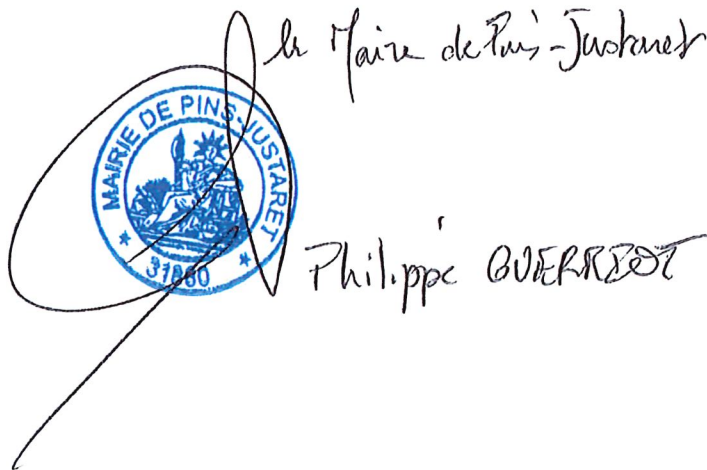 le Maire de Pins-Justaret
MAIRIE DE PINS-JUSTARET
* 31860 *
Philippe GUERRIOT